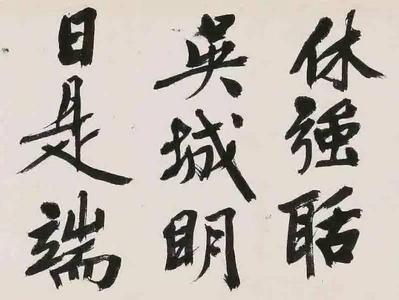 休強聒
吳城明
日是端